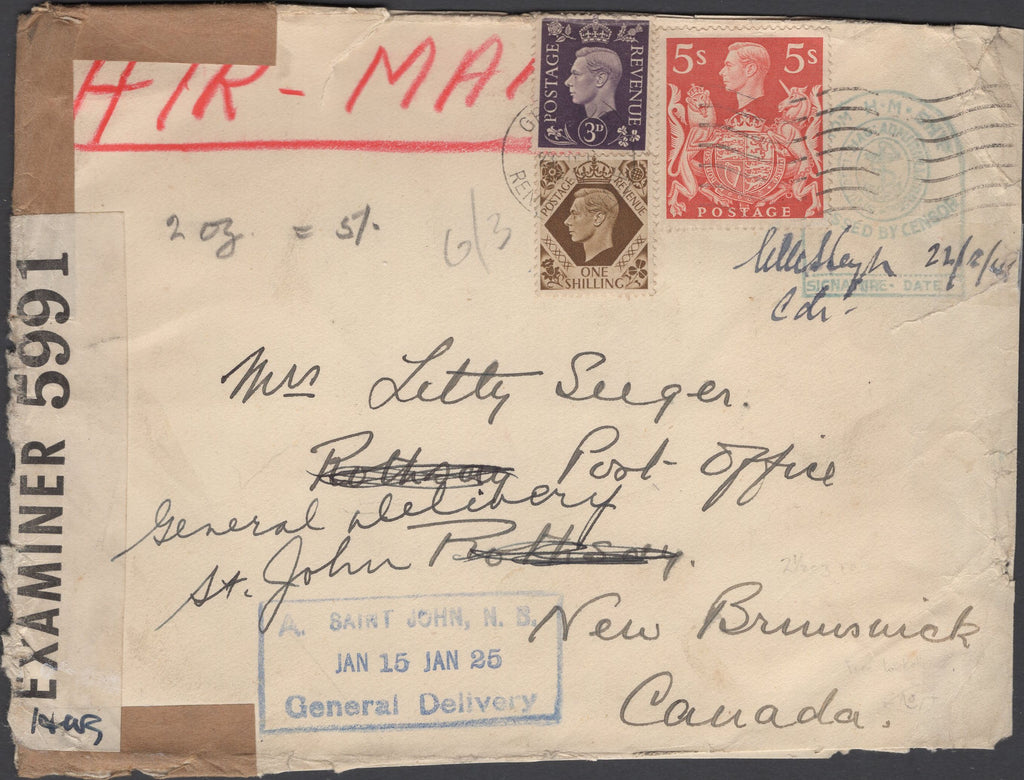 AIR - MAI
POSTAGE REVENUE
3D
5S 5S
POSTAGE
POSTAGE REVENUE
ONE
SHILLING
H.M. SHIP
ED BY CENSOR
22/12/4
SIGNATURE - DATE
Cdr-
2 oz. = 5/-
6/3
EXAMINER 5991
Mrs Letty Seeger.
Rothsay Post Office
General Delivery
St. John Rothsay.
New Brunswick
Canada.
A. SAINT JOHN, N. B.
JAN 15 JAN 25
General Delivery